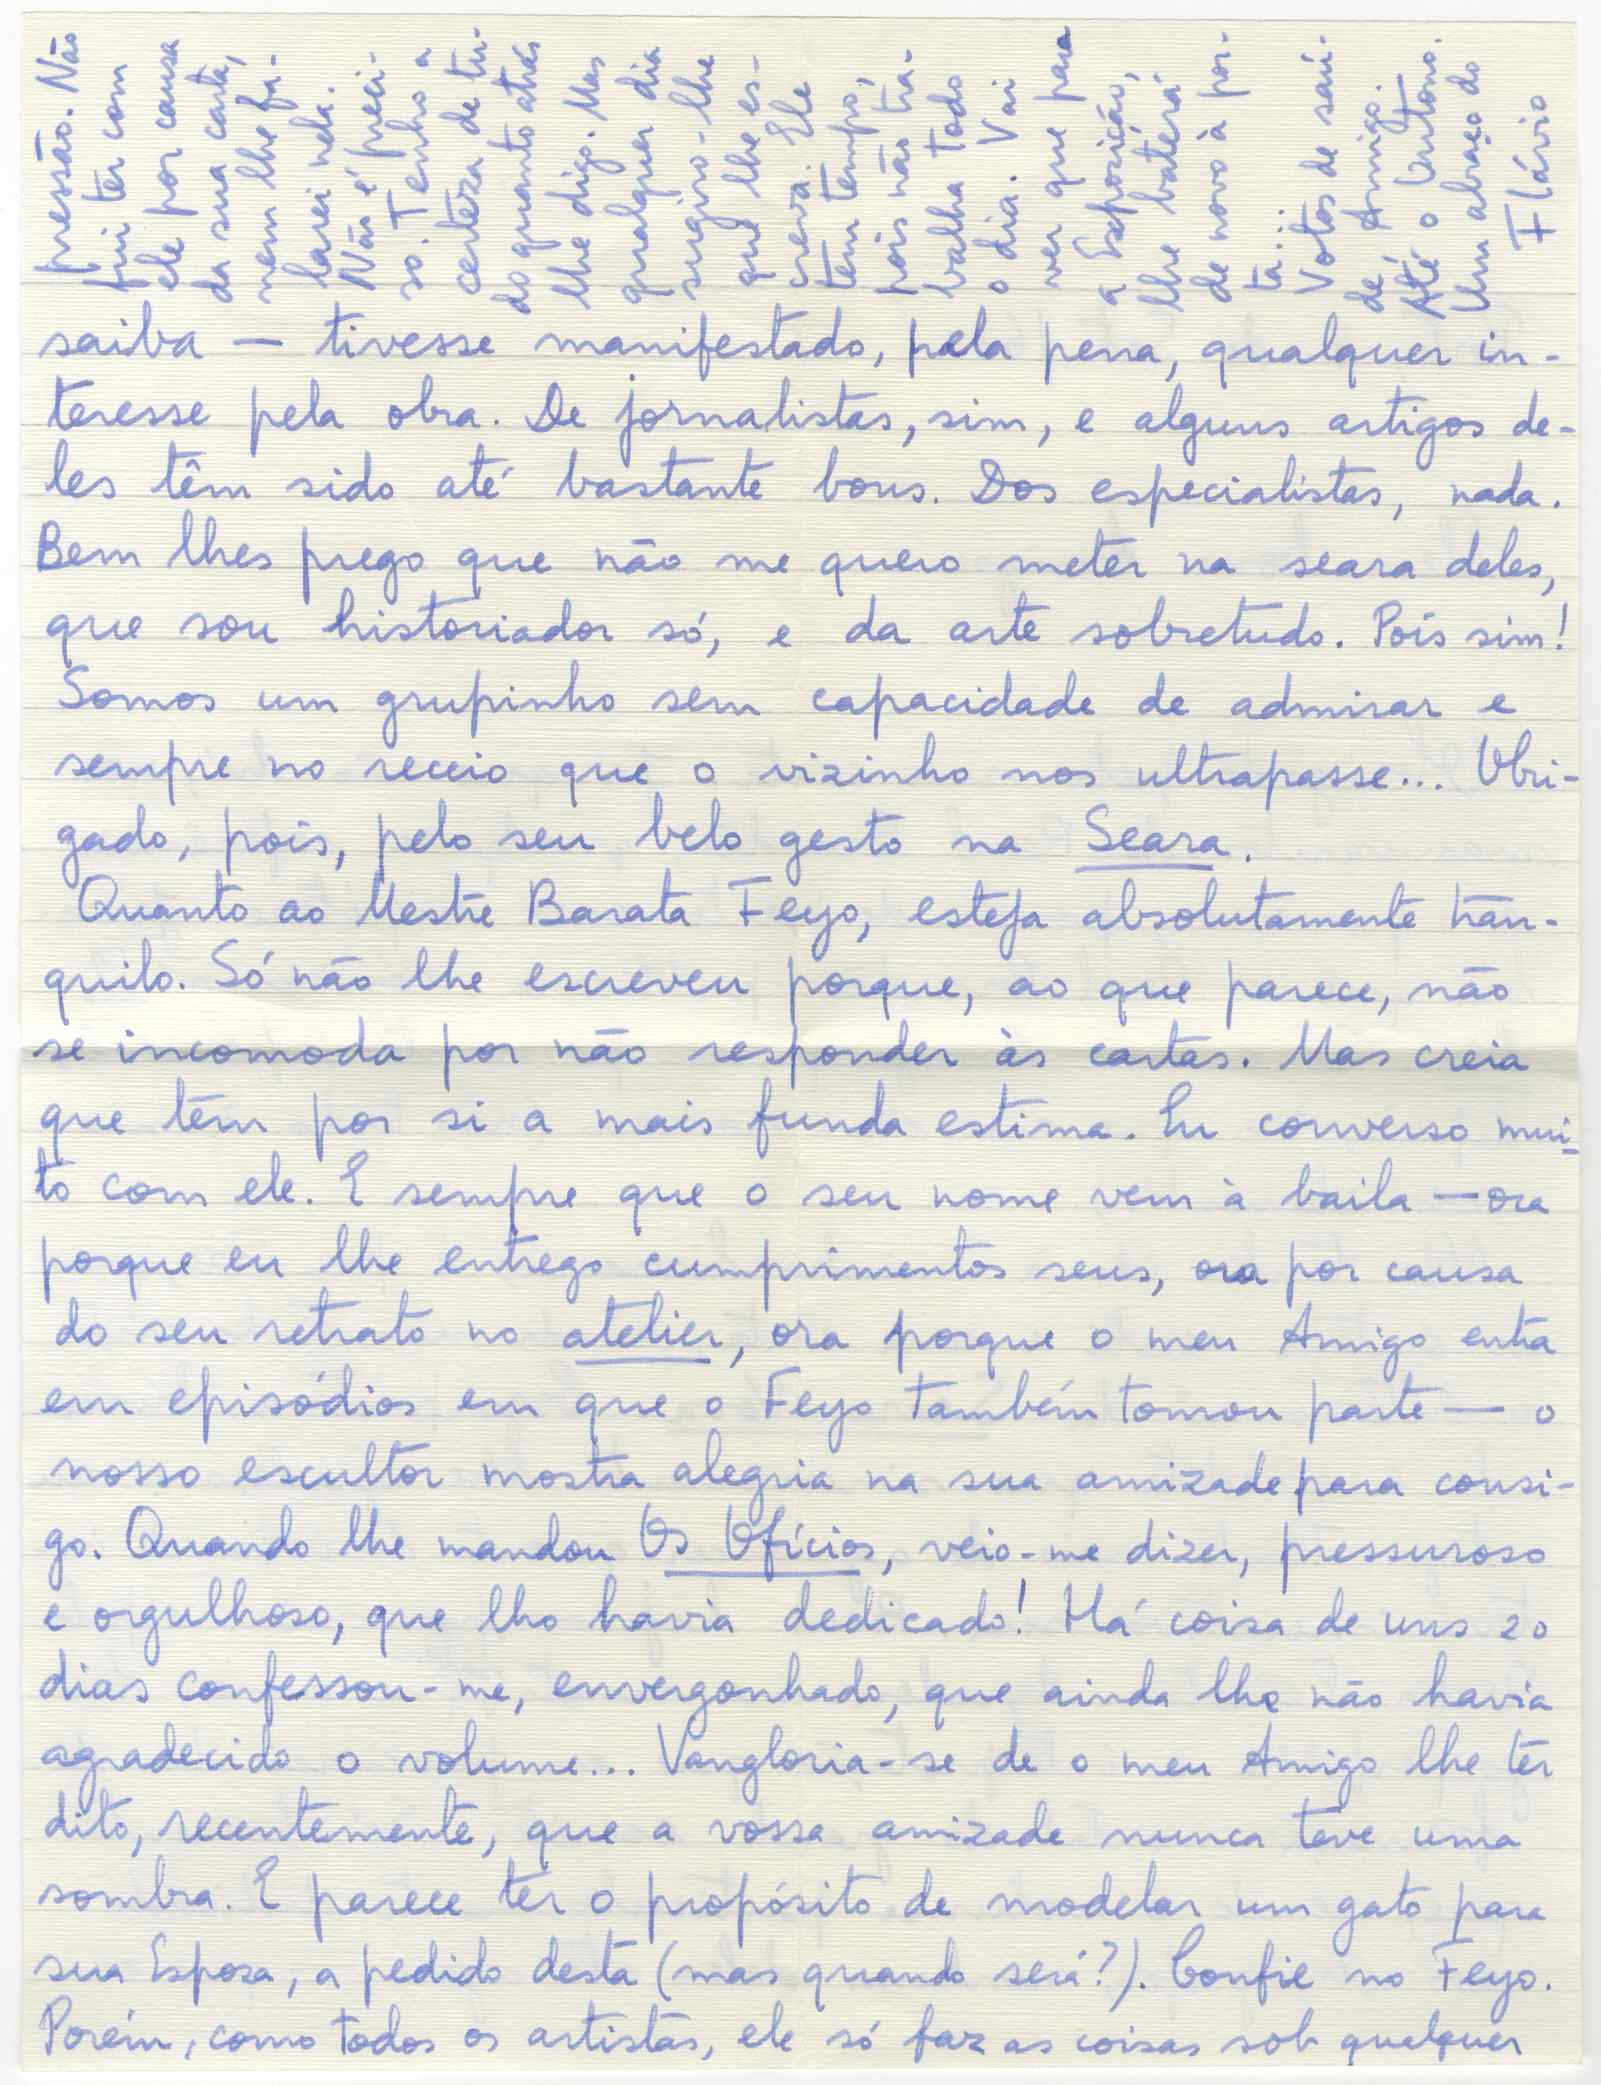 saiba — tivesse manifestado, pela pena, qualquer in-
teresse pela obra. De jornalistas, sim, e alguns artigos de-
les têm sido até bastante bons. Dos especialistas, nada.
Bem lhes prego que não me quero meter na seara deles,
que sou historiador só, e da arte sobretudo. Pois sim!
Somos um grupinho sem capacidade de admirar e
sempre no receio que o vizinho nos ultrapasse... Obri-
gado, pois, pelo seu belo gesto na Seara.
Quanto ao Mestre Barata Feyo, esteja absolutamente tran-
quilo. Só não lhe escreveu porque, ao que parece, não
se incomoda por não responder às cartas. Mas creia
que têm por si a mais funda estima. Eu converso mui-
to com ele. E sempre que o seu nome vem à baila — ora
porque eu lhe entrego cumprimentos seus, ora por causa
do seu retrato no atelier, ora porque o meu Amigo entra
em episódios em que o Feyo também tomou parte — o
nosso escultor mostra alegria na sua amizade para consi-
go. Quando lhe mandou Os Ofícios, veio-me dizer, pressuroso
e orgulhoso, que lho havia dedicado! Há coisa de uns 20
dias confessou-me, envergonhado, que ainda lhe não havia
agradecido o volume... Vangloria-se de o meu Amigo lhe ter
dito, recentemente, que a vossa amizade nunca teve uma
sombra. E parece ter o propósito de modelar um gato para
sua Esposa, a pedido desta (mas quando será?). Confie no Feyo.
Porém, como todos os artistas, ele só faz as coisas sob qualquer
pressão. Não
fui ter com
ele por causa
da sua carta,
nem lhe fa-
larei nela.
Não é preci-
so. Tenho a
certeza de tu-
do quanto atrás
lhe digo. Mas
qualquer dia
sugiro-lhe
que lhe es-
creva. Ele
tem tempo,
pois não tra-
balha todo
o dia. Vai
ver que para
a Exposição,
lhe baterá
de novo à por-
ta...
Votos de saú-
de, Amigo.
Até o Outono.
Um abraço do
Flávio